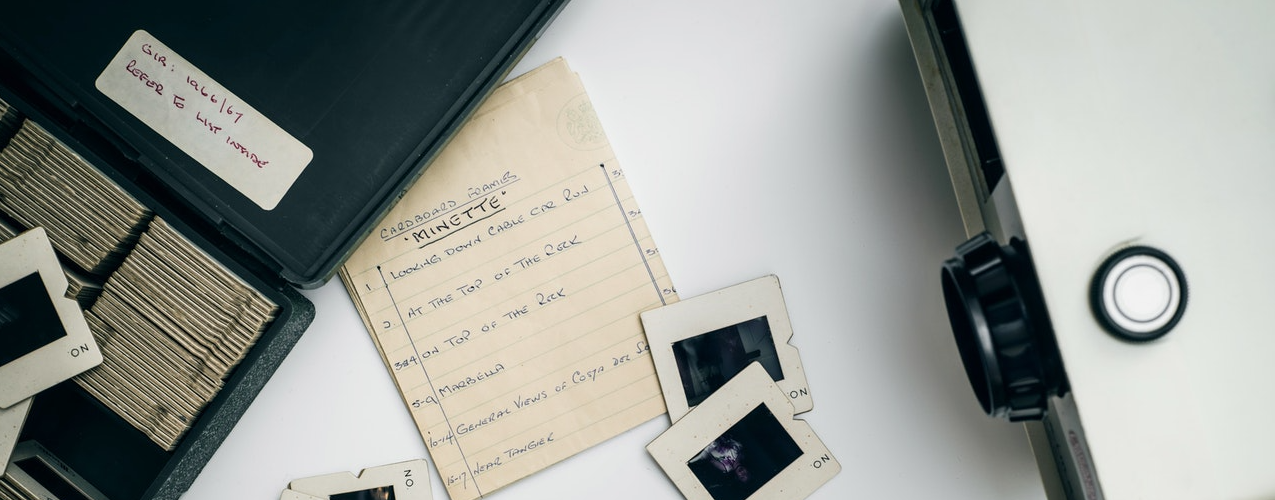 GIB: 1966/67
REFER TO LIST INSIDE
CARDBOARD FRAMES
"MINETTE"
1 LOOKING DOWN CABLE CAR RUN
2 AT THE TOP OF THE ROCK
3&4 ON TOP OF THE ROCK
5-9 MARBELLA
10-14 GENERAL VIEWS OF COSTA DEL
15-17 NEAR TANGIER
NO
NO
NO
NO